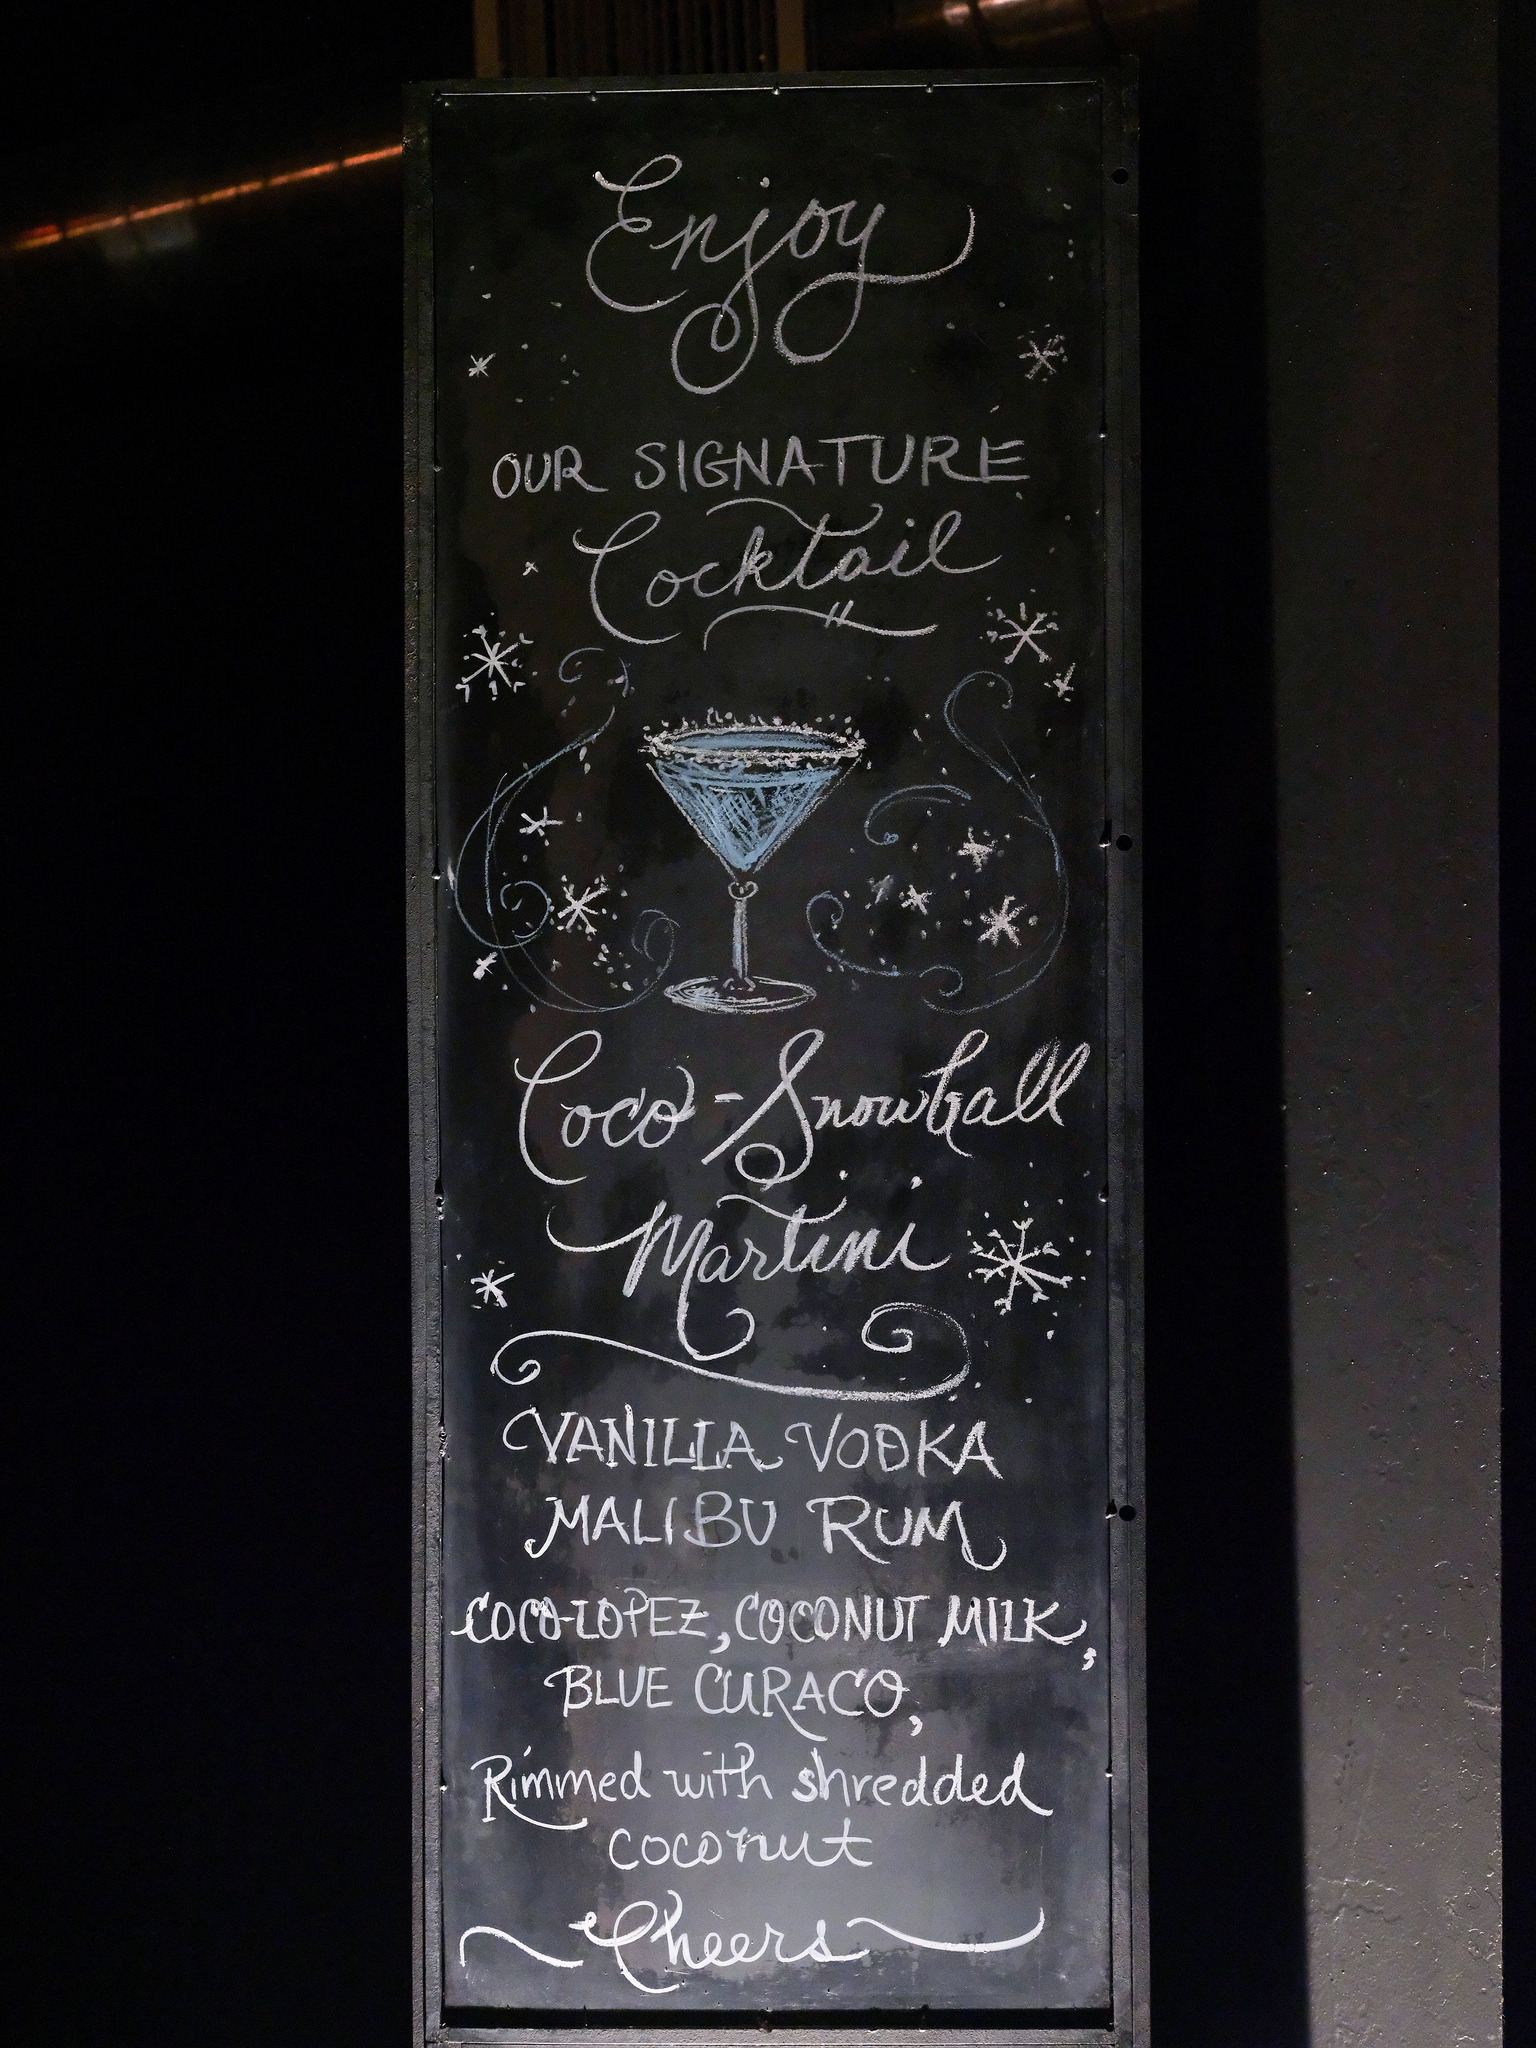 Enjoy
OUR SIGNATURE
Cocktail
Coco-Snowball
Martini
VANILLA VODKA
MALIBU RUM
COCO-LOPEZ, COCONUT MILK,
BLUE CURACO,
Rimmed with shredded
coconut
Cheers